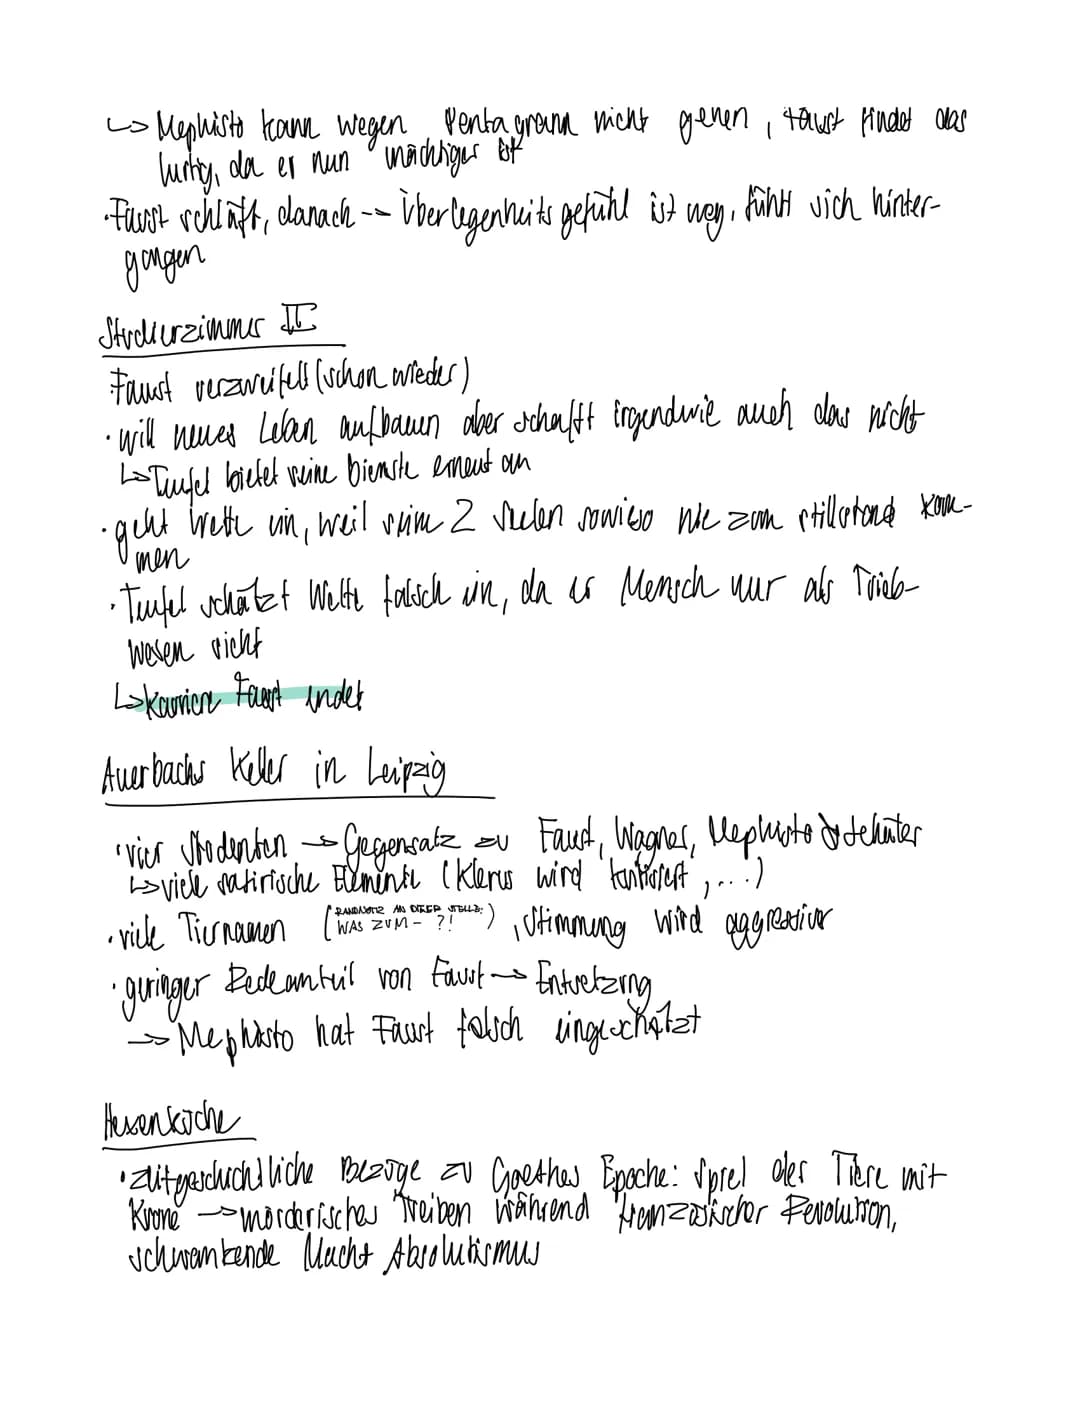 ↳ Mephisto kann wegen Pentagramm nicht gehen, Faust findet das
lustig, da er nun mächtiger ist
· Faust schläft, danach --> Überlegenheitsgefühl ist weg, fühlt sich hinter-
gangen
Studierzimmer II
Faust verzweifelt (schon wieder)
· will neues Leben aufbauen aber schafft irgendwie auch das nicht
↳ Teufel bietet seine Dienste erneut an
· geht Wette ein, weil seine 2 Seelen sowieso nie zum stillstand kom-
men
· Teufel schätzt Wette falsch ein, da er Mensch nur als Trieb-
wesen sieht
↳ Faust endet
Auerbachs Keller in Leipzig
· vier Studenten → Gegensatz zu Faust, Wagner, Mephisto & Schüler
↳ viele satirische Elemente (Klerus wird kritisiert, ...)
· viele Tiernamen (RANDNOTIZ AN DIESER STELLE: WAS ZUM - ?!), Stimmung wird aggressiver
· geringer Redeanteil von Faust → Entsetzung
→ Mephisto hat Faust falsch eingeschätzt
Hexenküche
· zeitgeschichtliche Bezüge zu Goethes Epoche: Spiel der Tiere mit
Krone → mörderisches Treiben während französischer Revolution,
schwankende Macht Absolutismus